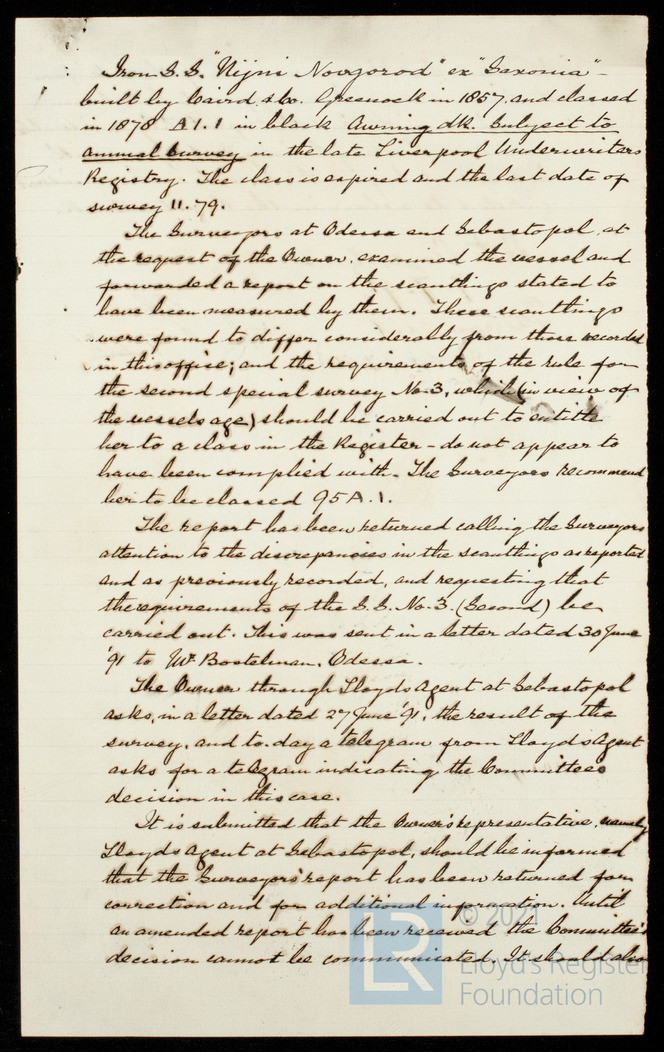 Iron S.S. "Nijni Novgorod" ex "Saxonia" -
built by Caird & Co. Greenock in 1857, and classed
in 1878 A1.1 in black Awning dk. Subject to
annual survey in the late Liverpool Underwriters
Registry. The class is expired and the last date of
survey 11.79.
The Surveyors at Odessa and Sebastopol, at
the request of the Owner, examined the vessel and
forwarded a report on the scantlings stated to
have been measured by them. These scantlings
were found to differ considerably from those recorded
in this office; and the requirements of the rule for
the second special survey No. 3, which (in view of
the vessels age) should be carried out to entitle
her to a class in the Register - do not appear to
have been complied with. The Surveyors recommend
her to be classed 95A.1.
The report has been returned calling the Surveyors
attention to the discrepancies in the scantlings as reported
and as previously recorded, and requesting that
the requirements of the S.S. No. 3. (Second) be
carried out. This was sent in a letter dated 30 June
'91 to Mr. Bostelman, Odessa.
The Owner through Lloyds Agent at Sebastopol
asks, in a letter dated 27 June '91, the result of the
survey, and to-day a telegram from Lloyd's Agent
asks for a telegram indicating the Committees
decision in this case.
It is submitted that the Owner's representative, namely
Lloyds Agent at Sebastopol, should be informed
that the Surveyors' report has been returned for
correction and for additional information. Until
an amended report has been received the Committee's
decision cannot be communicated. It should also
LR
© 2021
Lloyd's Register
Foundation